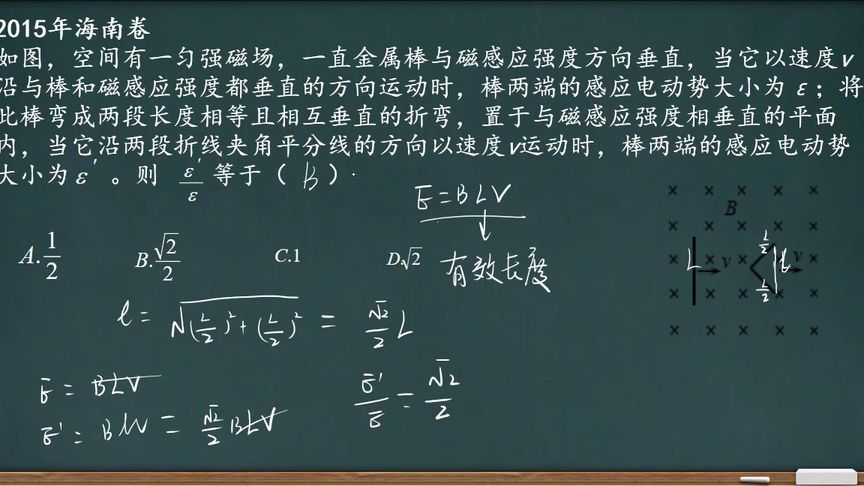 2015年海南卷
如图，空间有一匀强磁场，一直金属棒与磁感应强度方向垂直，当它以速度v
沿与棒和磁感应强度都垂直的方向运动时，棒两端的感应电动势大小为 ε ；将
此棒弯成两段长度相等且相互垂直的折弯，置于与磁感应强度相垂直的平面
内，当它沿两段折线夹角平分线的方向以速度v运动时，棒两端的感应电动势
大小为 ε′ 。则 ε′/ε 等于（ B ）.
E=BLV
有效长度
A. 1/2 B. √2/2 C.1 D.√2
B
L v L/2 L/2 l v
l = √((L/2)²+(L/2)²) = √2/2 L
E = BLV
E' = BlV = √2/2 BLV
E'/E = √2/2